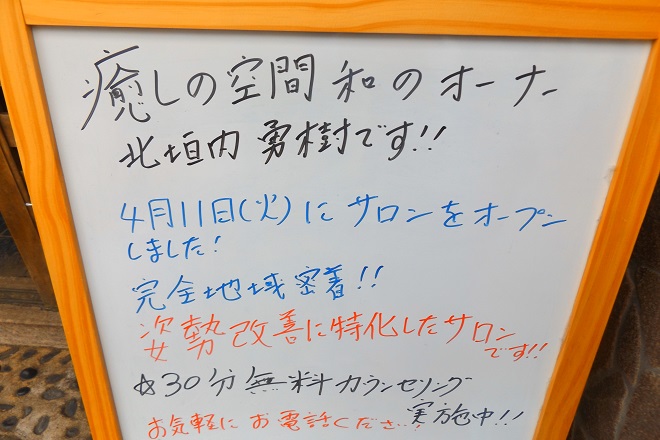 癒しの空間 和のオーナー
北垣内 勇樹です!!
4月11日(火)にサロンをオープン
しました!
完全地域密着!!
姿勢改善に特化したサロン
です!!
☆30分無料カウンセリング
実施中!!
お気軽にお電話ください!